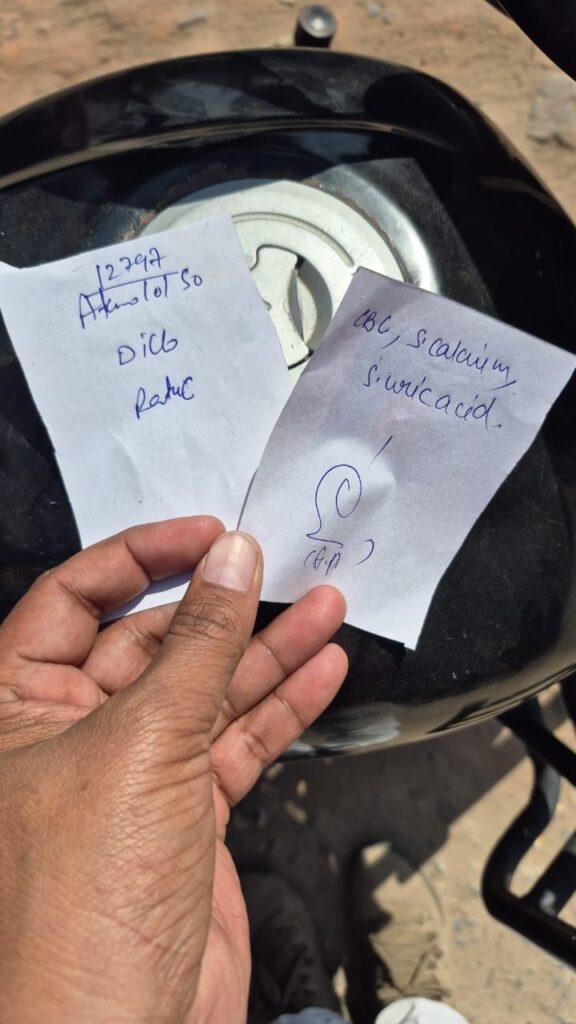 12797
Atenolol 50
Diclo
CBC, S. calcium,
S. uric acid.